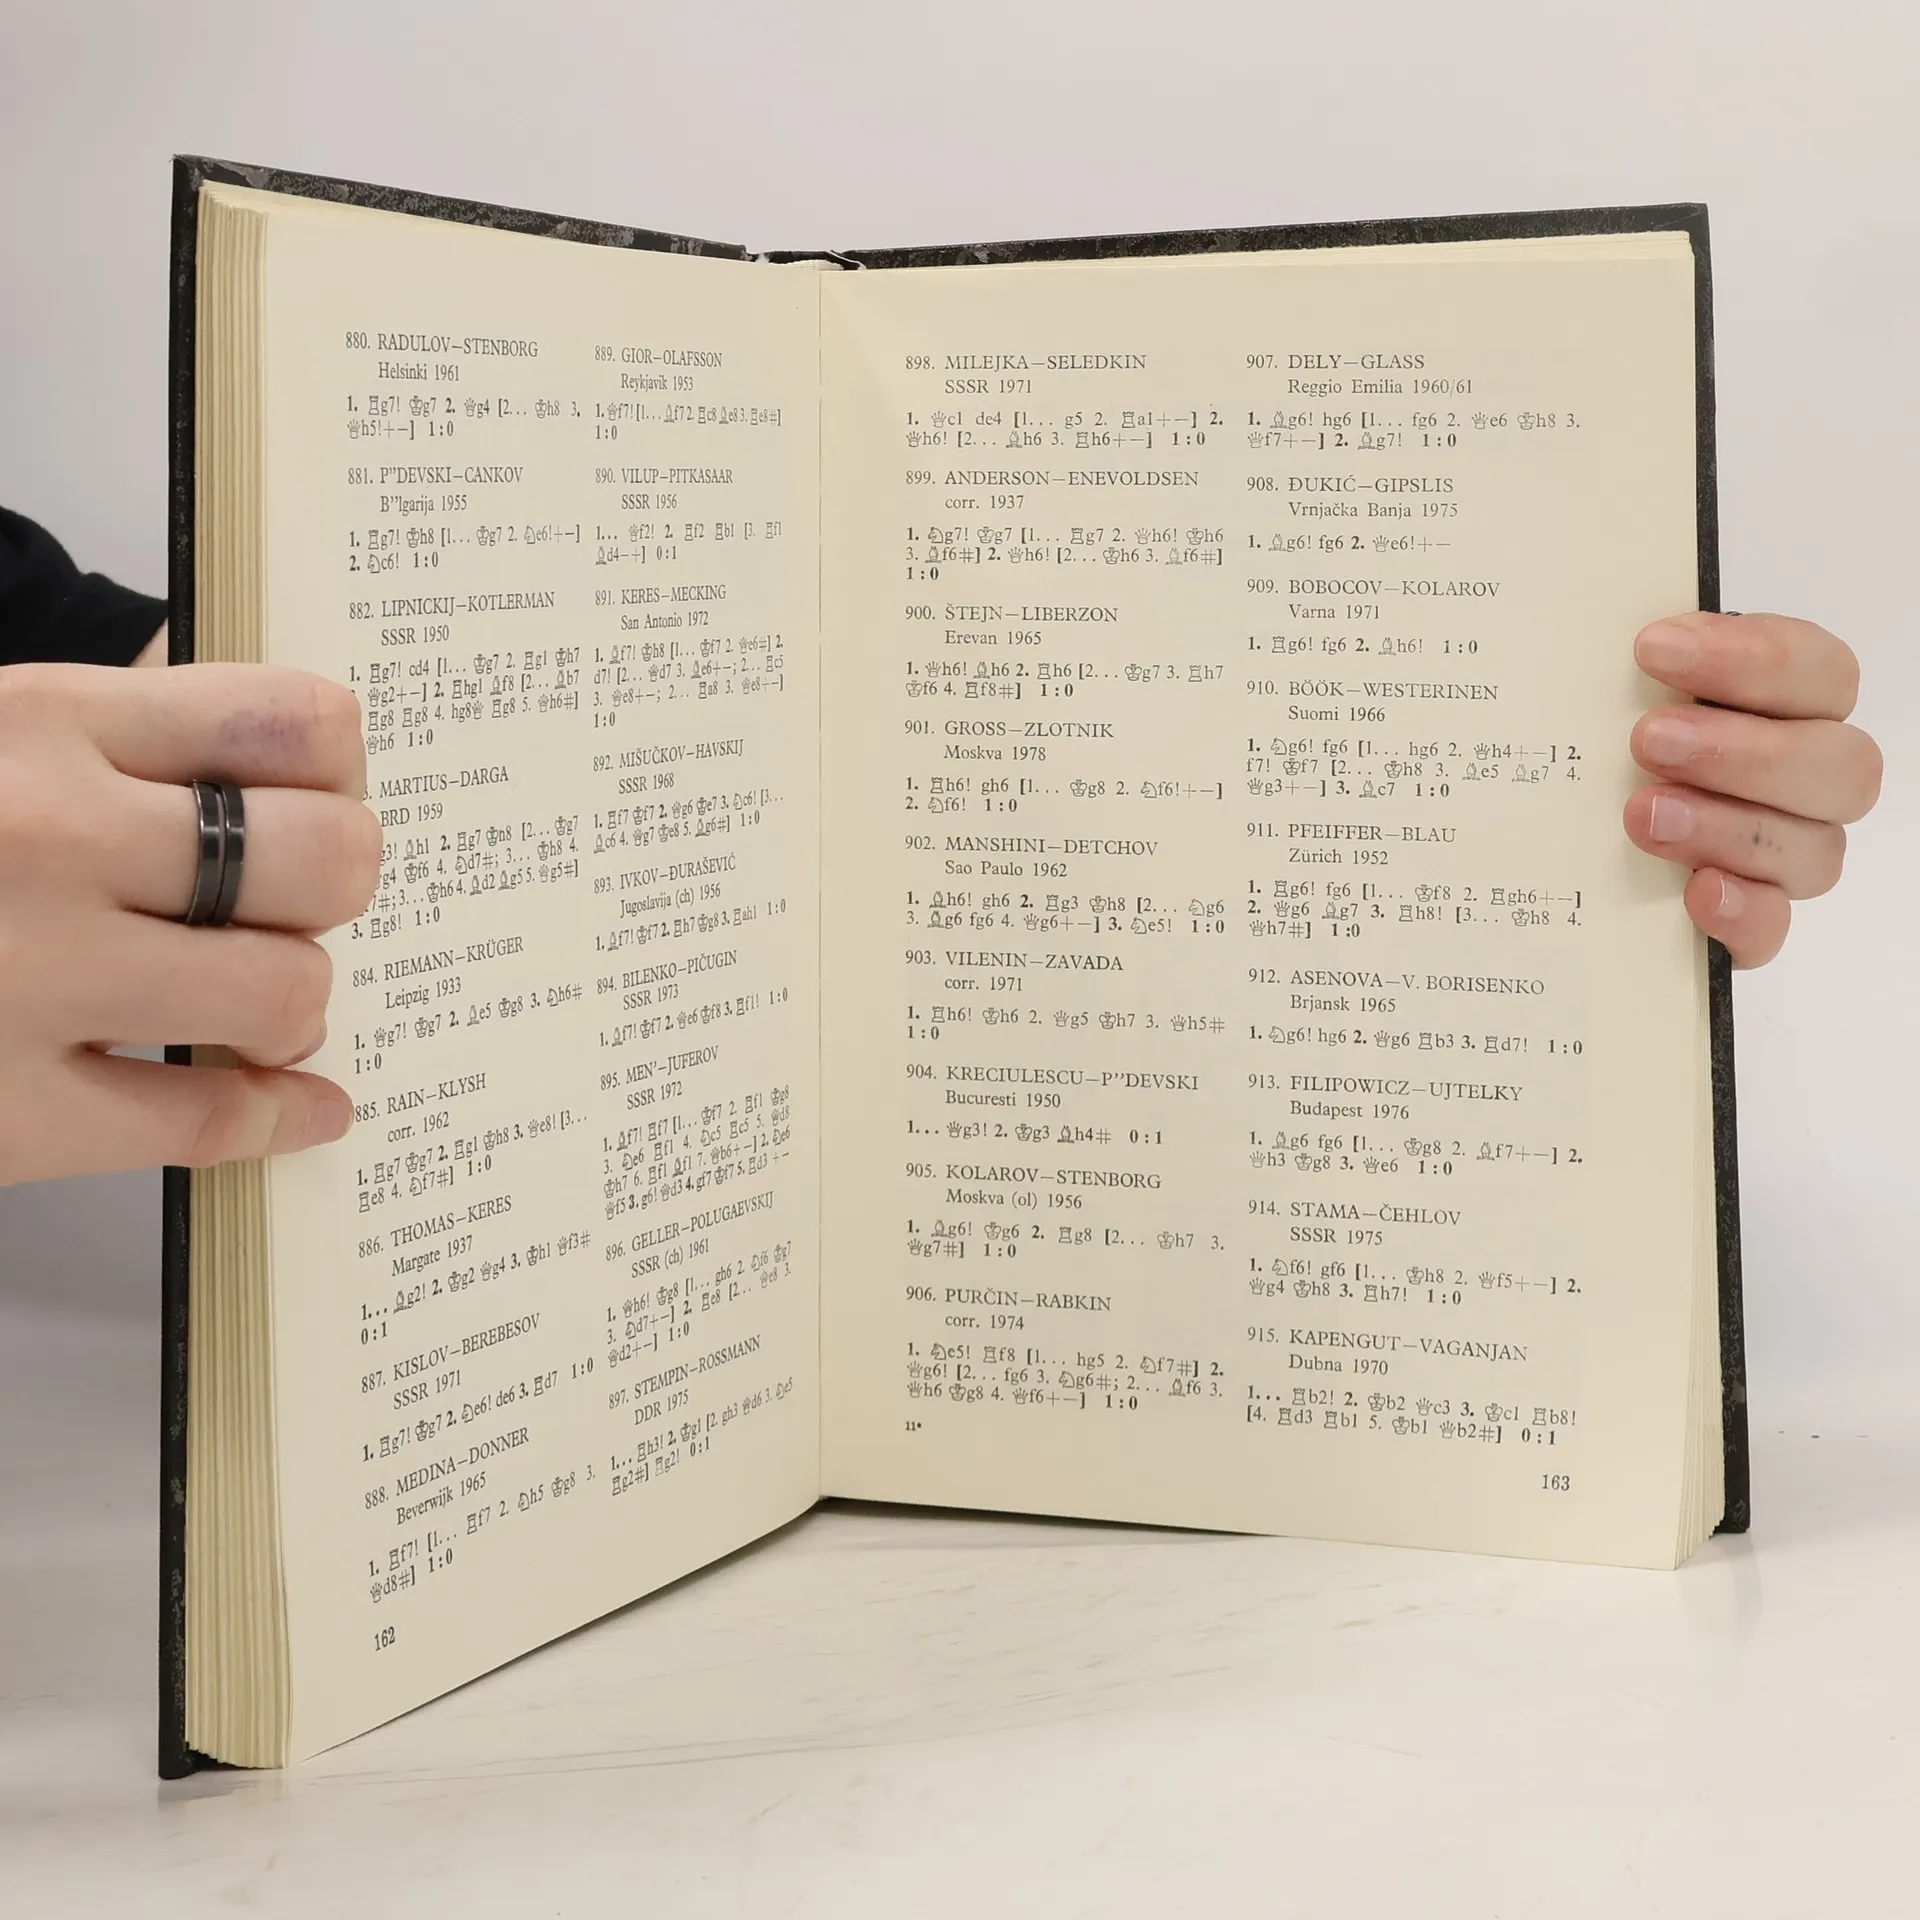 880. RADULOV—STENBORG
Helsinki 1961
1. ♖g7! ♔g7 2. ♕g4 [2... ♔h8 3.
♕h5!+—] 1:0
881. P”DEVSKI—CANKOV
B”lgarija 1955
1. ♖g7! ♔h8 [1... ♔g7 2. ♘e6!+—]
2. ♘c6! 1:0
882. LIPNICKIJ—KOTLERMAN
SSSR 1950
1. ♖g7! cd4 [1... ♔g7 2. ♖g1 ♔h7
♕g2+—] 2. ♖hg1 ♗f8 [2... ♗b7
♖g8 ♖g8 4. hg8♕ ♖g8 5. ♕h6#]
♕h6 1:0
MARTIUS—DARGA
BRD 1959
g3! ♗h1 2. ♖g7 ♔h8 [2... ♔g7
g4 ♔f6 4. ♘d7#; 3... ♔h8 4.
7#; 3... ♔h6 4. ♗d2 ♗g5 5. ♕g5#]
3. ♖g8! 1:0
884. RIEMANN—KRÜGER
Leipzig 1933
1. ♕g7! ♔g7 2. ♗e5 ♔g8 3. ♘h6#
1:0
885. RAIN—KLYSH
corr. 1962
1. ♖g7 ♔g7 2. ♖g1 ♔h8 3. ♕e8! [3...
♖e8 4. ♘f7#] 1:0
886. THOMAS—KERES
Margate 1937
1... ♗g2! 2. ♔g2 ♕g4 3. ♔h1 ♕f3#
0:1
887. KISLOV—BEREBESOV
SSSR 1971
1. ♖g7! ♔g7 2. ♘e6! de6 3. ♖d7 1:0
888. MEDINA—DONNER
Beverwijk 1965
1. ♖f7! [1... ♖f7 2. ♘h5 ♔g8 3.
♕d8#] 1:0
162
889. GIOR—OLAFSSON
Reykjavik 1953
1. ♕f7! [1... ♗f7 2. ♖c8 ♗e8 3. ♖e8#]
1:0
890. VILUP—PITKASAAR
SSSR 1956
1... ♕f2! 2. ♖f2 ♖b1 [3. ♖f1
♗d4—+] 0:1
891. KERES—MECKING
San Antonio 1972
1. ♗f7! ♔h8 [1... ♔f7 2. ♕e6#] 2.
d7! [2... ♕d7 3. ♗e6+—; 2... ♖c5
3. ♕e8+—; 2... ♖a8 3. ♕e8+—]
1:0
892. MIŠUČKOV—HAVSKIJ
SSSR 1968
1. ♖f7 ♔f7 2. ♕g6 ♔e7 3. ♘c6! [3...
♗c6 4. ♕g7 ♔e8 5. ♗g6#] 1:0
893. IVKOV—ĐURAŠEVIĆ
Jugoslavija (ch) 1956
1. ♗f7! ♔f7 2. ♖h7 ♔g8 3. ♖ah1 1:0
894. BILENKO—PIČUGIN
SSSR 1973
1. ♗f7! ♔f7 2. ♕e6 ♔f8 3. ♖f1! 1:0
895. MEN’—JUFEROV
SSSR 1972
1. ♗f7! ♖f7 [1... ♔f7 2. ♖f1 ♔g8
3. ♘e6 ♖f1 4. ♘c5 ♖c5 5. ♕d8
♔h7 6. ♖f1 ♗f1 7. ♕b6+—] 2. ♘e6
♕f5 3. g6! ♕d3 4. gf7 ♔f7 5. ♖d3 +—
896. GELLER—POLUGAEVSKIJ
SSSR (ch) 1961
1. ♕h6! ♔g8 [1... gh6 2. ♘f6 ♔g7
3. ♘d7+—] 2. ♖e8 [2... ♕e8 3.
♕d2+—] 1:0
897. STEMPIN—ROSSMANN
DDR 1975
1... ♖h3! 2. ♔g1 [2. gh3 ♕d6 3. ♘e5
♖g2#] ♖g2! 0:1
898. MILEJKA—SELEDKIN
SSSR 1971
1. ♕c1 de4 [1... g5 2. ♖a1+—] 2.
♕h6! [2... ♗h6 3. ♖h6+—] 1:0
899. ANDERSON—ENEVOLDSEN
corr. 1937
1. ♘g7! ♔g7 [1... ♖g7 2. ♕h6! ♔h6
3. ♗f6#] 2. ♕h6! [2... ♔h6 3. ♗f6#]
1:0
900. ŠTEJN—LIBERZON
Erevan 1965
1. ♕h6! ♗h6 2. ♖h6 [2... ♔g7 3. ♖h7
♔f6 4. ♖f8#] 1:0
901. GROSS—ZLOTNIK
Moskva 1978
1. ♖h6! gh6 [1... ♔g8 2. ♘f6!+—]
2. ♘f6! 1:0
902. MANSHINI—DETCHOV
Sao Paulo 1962
1. ♗h6! gh6 2. ♖g3 ♔h8 [2... ♘g6
3. ♗g6 fg6 4. ♕g6+—] 3. ♘e5! 1:0
903. VILENIN—ZAVADA
corr. 1971
1. ♖h6! ♔h6 2. ♕g5 ♔h7 3. ♕h5#
1:0
904. KRECIULESCU—P”DEVSKI
Bucuresti 1950
1... ♕g3! 2. ♔g3 ♗h4# 0:1
905. KOLAROV—STENBORG
Moskva (ol) 1956
1. ♗g6! ♔g6 2. ♖g8 [2... ♔h7 3.
♕g7#] 1:0
906. PURČIN—RABKIN
corr. 1974
1. ♘e5! ♖f8 [1... hg5 2. ♘f7#] 2.
♕g6! [2... fg6 3. ♘g6#; 2... ♗f6 3.
♕h6 ♔g8 4. ♕f6+—] 1:0
11*
907. DELY—GLASS
Reggio Emilia 1960/61
1. ♗g6! hg6 [1... fg6 2. ♕e6 ♔h8 3.
♕f7+—] 2. ♗g7! 1:0
908. ĐUKIĆ—GIPSLIS
Vrnjačka Banja 1975
1. ♗g6! fg6 2. ♕e6!+—
909. BOBOCOV—KOLAROV
Varna 1971
1. ♖g6! fg6 2. ♗h6! 1:0
910. BÖÖK—WESTERINEN
Suomi 1966
1. ♘g6! fg6 [1... hg6 2. ♕h4+—] 2.
f7! ♔f7 [2... ♔h8 3. ♗e5 ♗g7 4.
♕g3+—] 3. ♗c7 1:0
911. PFEIFFER—BLAU
Zürich 1952
1. ♖g6! fg6 [1... ♔f8 2. ♖gh6+—]
2. ♕g6 ♗g7 3. ♖h8! [3... ♔h8 4.
♕h7#] 1:0
912. ASENOVA—V. BORISENKO
Brjansk 1965
1. ♘g6! hg6 2. ♕g6 ♖b3 3. ♖d7! 1:0
913. FILIPOWICZ—UJTELKY
Budapest 1976
1. ♗g6 fg6 [1... ♔g8 2. ♗f7+—] 2.
♕h3 ♔g8 3. ♕e6 1:0
914. STAMA—ČEHLOV
SSSR 1975
1. ♘f6! gf6 [1... ♔h8 2. ♕f5+—] 2.
♕g4 ♔h8 3. ♖h7! 1:0
915. KAPENGUT—VAGANJAN
Dubna 1970
1... ♖b2! 2. ♔b2 ♕c3 3. ♔c1 ♖b8!
[4. ♖d3 ♖b1 5. ♔b1 ♕b2#] 0:1
163